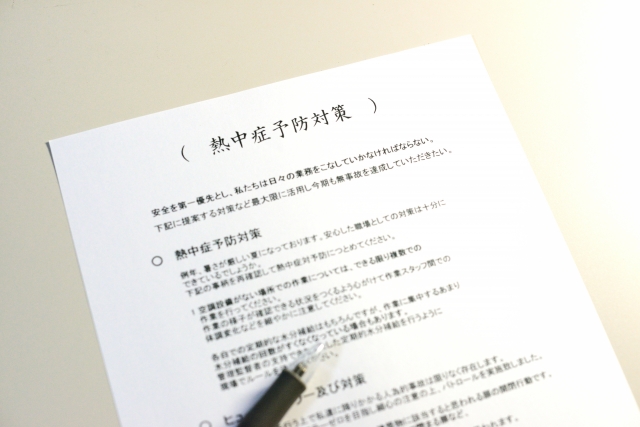 （ 熱中症予防対策 ）
安全を第一優先とし、私たちは日々の業務をこなしていかなければならない。
下記に提案する対策など最大限に活用し今期も無事故を達成していただきたい。
○ 熱中症予防対策
例年、暑さが厳しい夏になっております。安心した職場としての対策は十分に
できているでしょうか。
下記の事柄を再確認して熱中症対予防につとめてください。
1 空調設備がない場所での作業については、できる限り複数での
作業を行ってください。
作業の様子が確認できる状況をつくるよう心がけて作業スタッフ間での
体調変化などを細やかに注意してください。
各自での定期的な水分補給はもちろんですが、作業に集中するあまり
水分補給の回数がすくなくなっている場合もあります。
管理監督者の支持で した定期的水分補給を行うように
職場でルールを い。
○ ヒュ ラー及び対策
行う上で私達に降りかかる人為的事故は限りなく存在します。
ーゼロを目指し細心の注意の上、パトロールを実施致しました。
に該当すると思われる扉の開閉行動です。